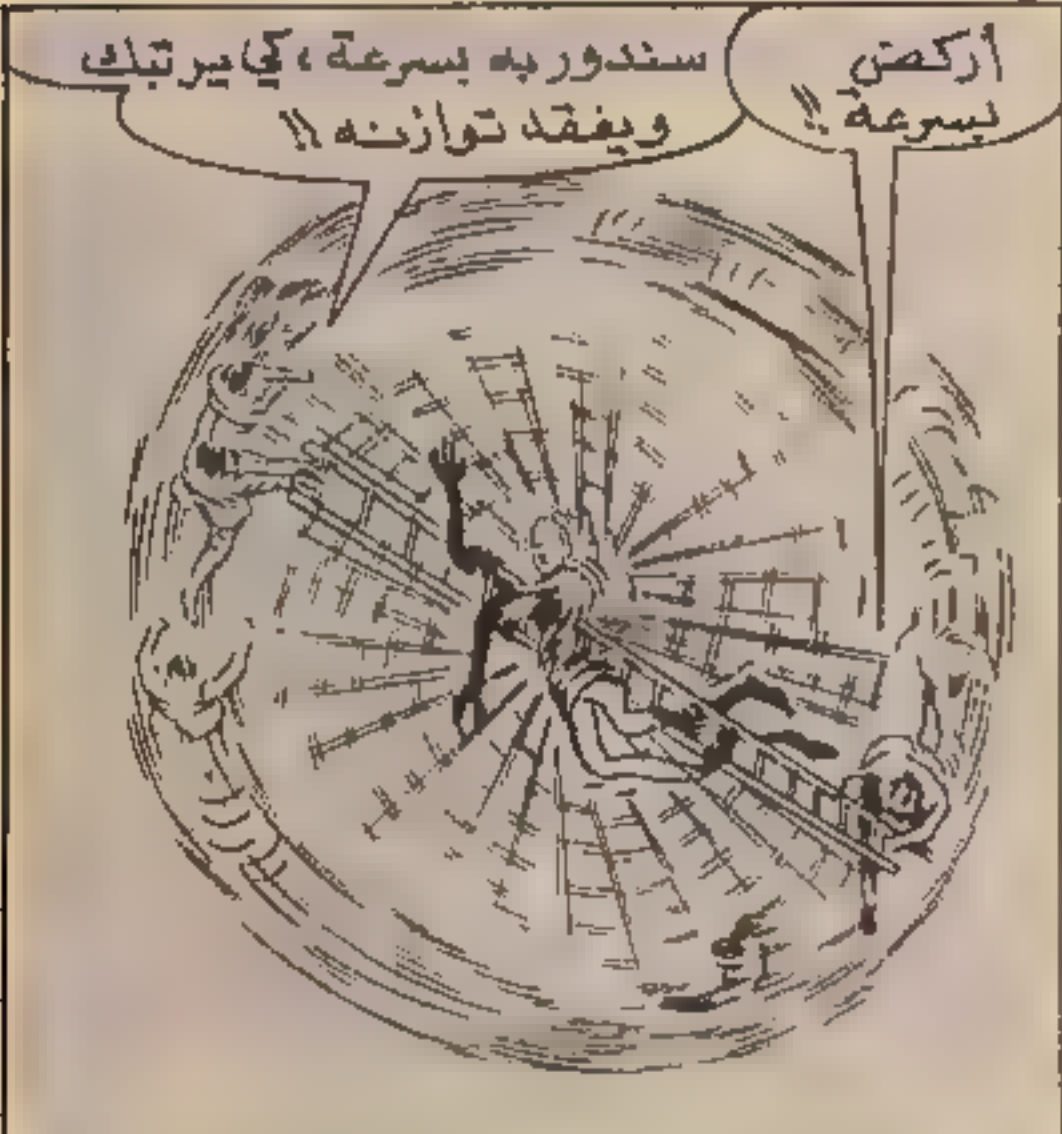 أركض
بسرعة !!
سندور به بسرعة ، كي يرتبك
ويفقد توازنه !!